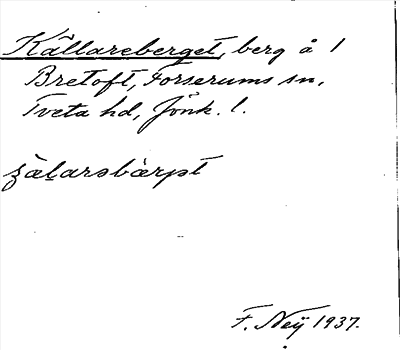 Källareberget, berg å 1
Bretoft, Forserums sn,
Tveta hd, Jönk. l.
F. Neÿ 1937.